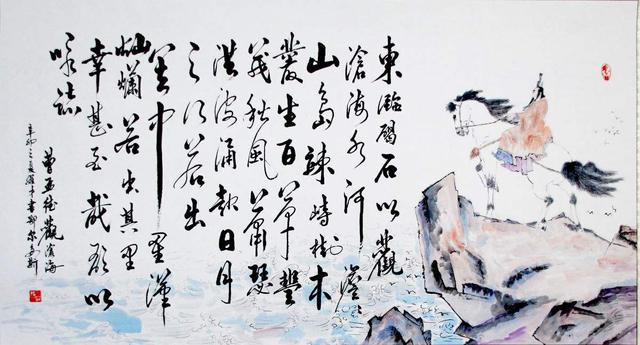 東臨碣石以觀
滄海水何澹澹
山島竦峙樹木
叢生百草豐
茂秋風蕭瑟
洪波涌起日月
之行若出
其中星漢
燦爛若出其里
幸甚至哉歌以
咏志
曹孟德觀滄海
辛卯之夏